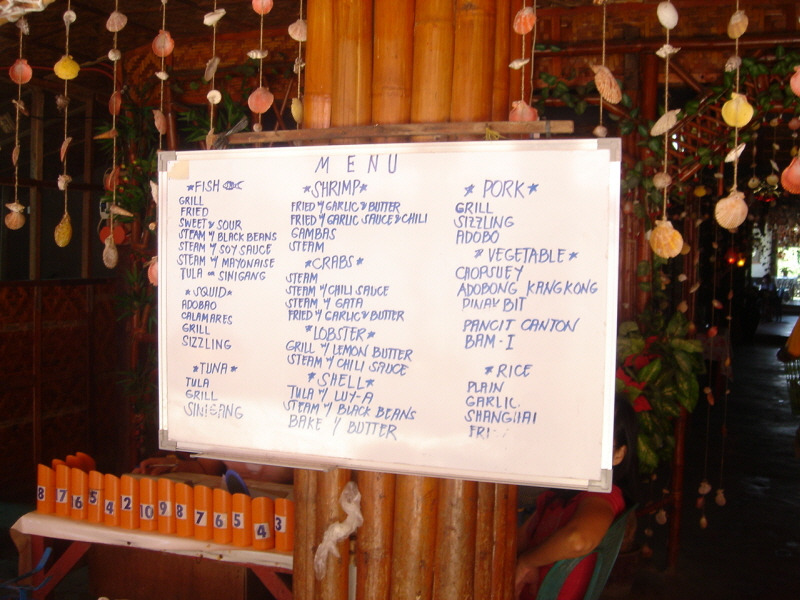 MENU
*FISH
GRILL
FRIED
SWEET & SOUR
STEAM W/ BLACK BEANS
STEAM W/ SOY SAUCE
STEAM W/ MAYONAISE
TULA OR SINIGANG
*SQUID*
ADOBAO
CALAMARES
GRILL
SIZZLING
*TUNA*
TULA
GRILL
SINIGANG
*SHRIMP*
FRIED W/ GARLIC & BUTTER
FRIED W/ GARLIC SAUCE & CHILI
GAMBAS
STEAM
*CRABS*
STEAM
STEAM W/ CHILI SAUCE
STEAM W/ GATA
FRIED W/ GARLIC & BUTTER
*LOBSTER*
GRILL W/ LEMON BUTTER
STEAM W/ CHILI SAUCE
*SHELL*
TULA W/ LUY-A
STEAM W/ BLACK BEANS
BAKE W/ BUTTER
* PORK*
GRILL
SIZZLING
ADOBO
*VEGETABLE*
CHOPSUEY
ADOBONG KANGKONG
PINAKBIT
PANCIT CANTON
BAM-I
*RICE
PLAIN
GARLIC
SHANGHAI
8 7 6 5 4 2 10 9 8 7 6 5 4 3